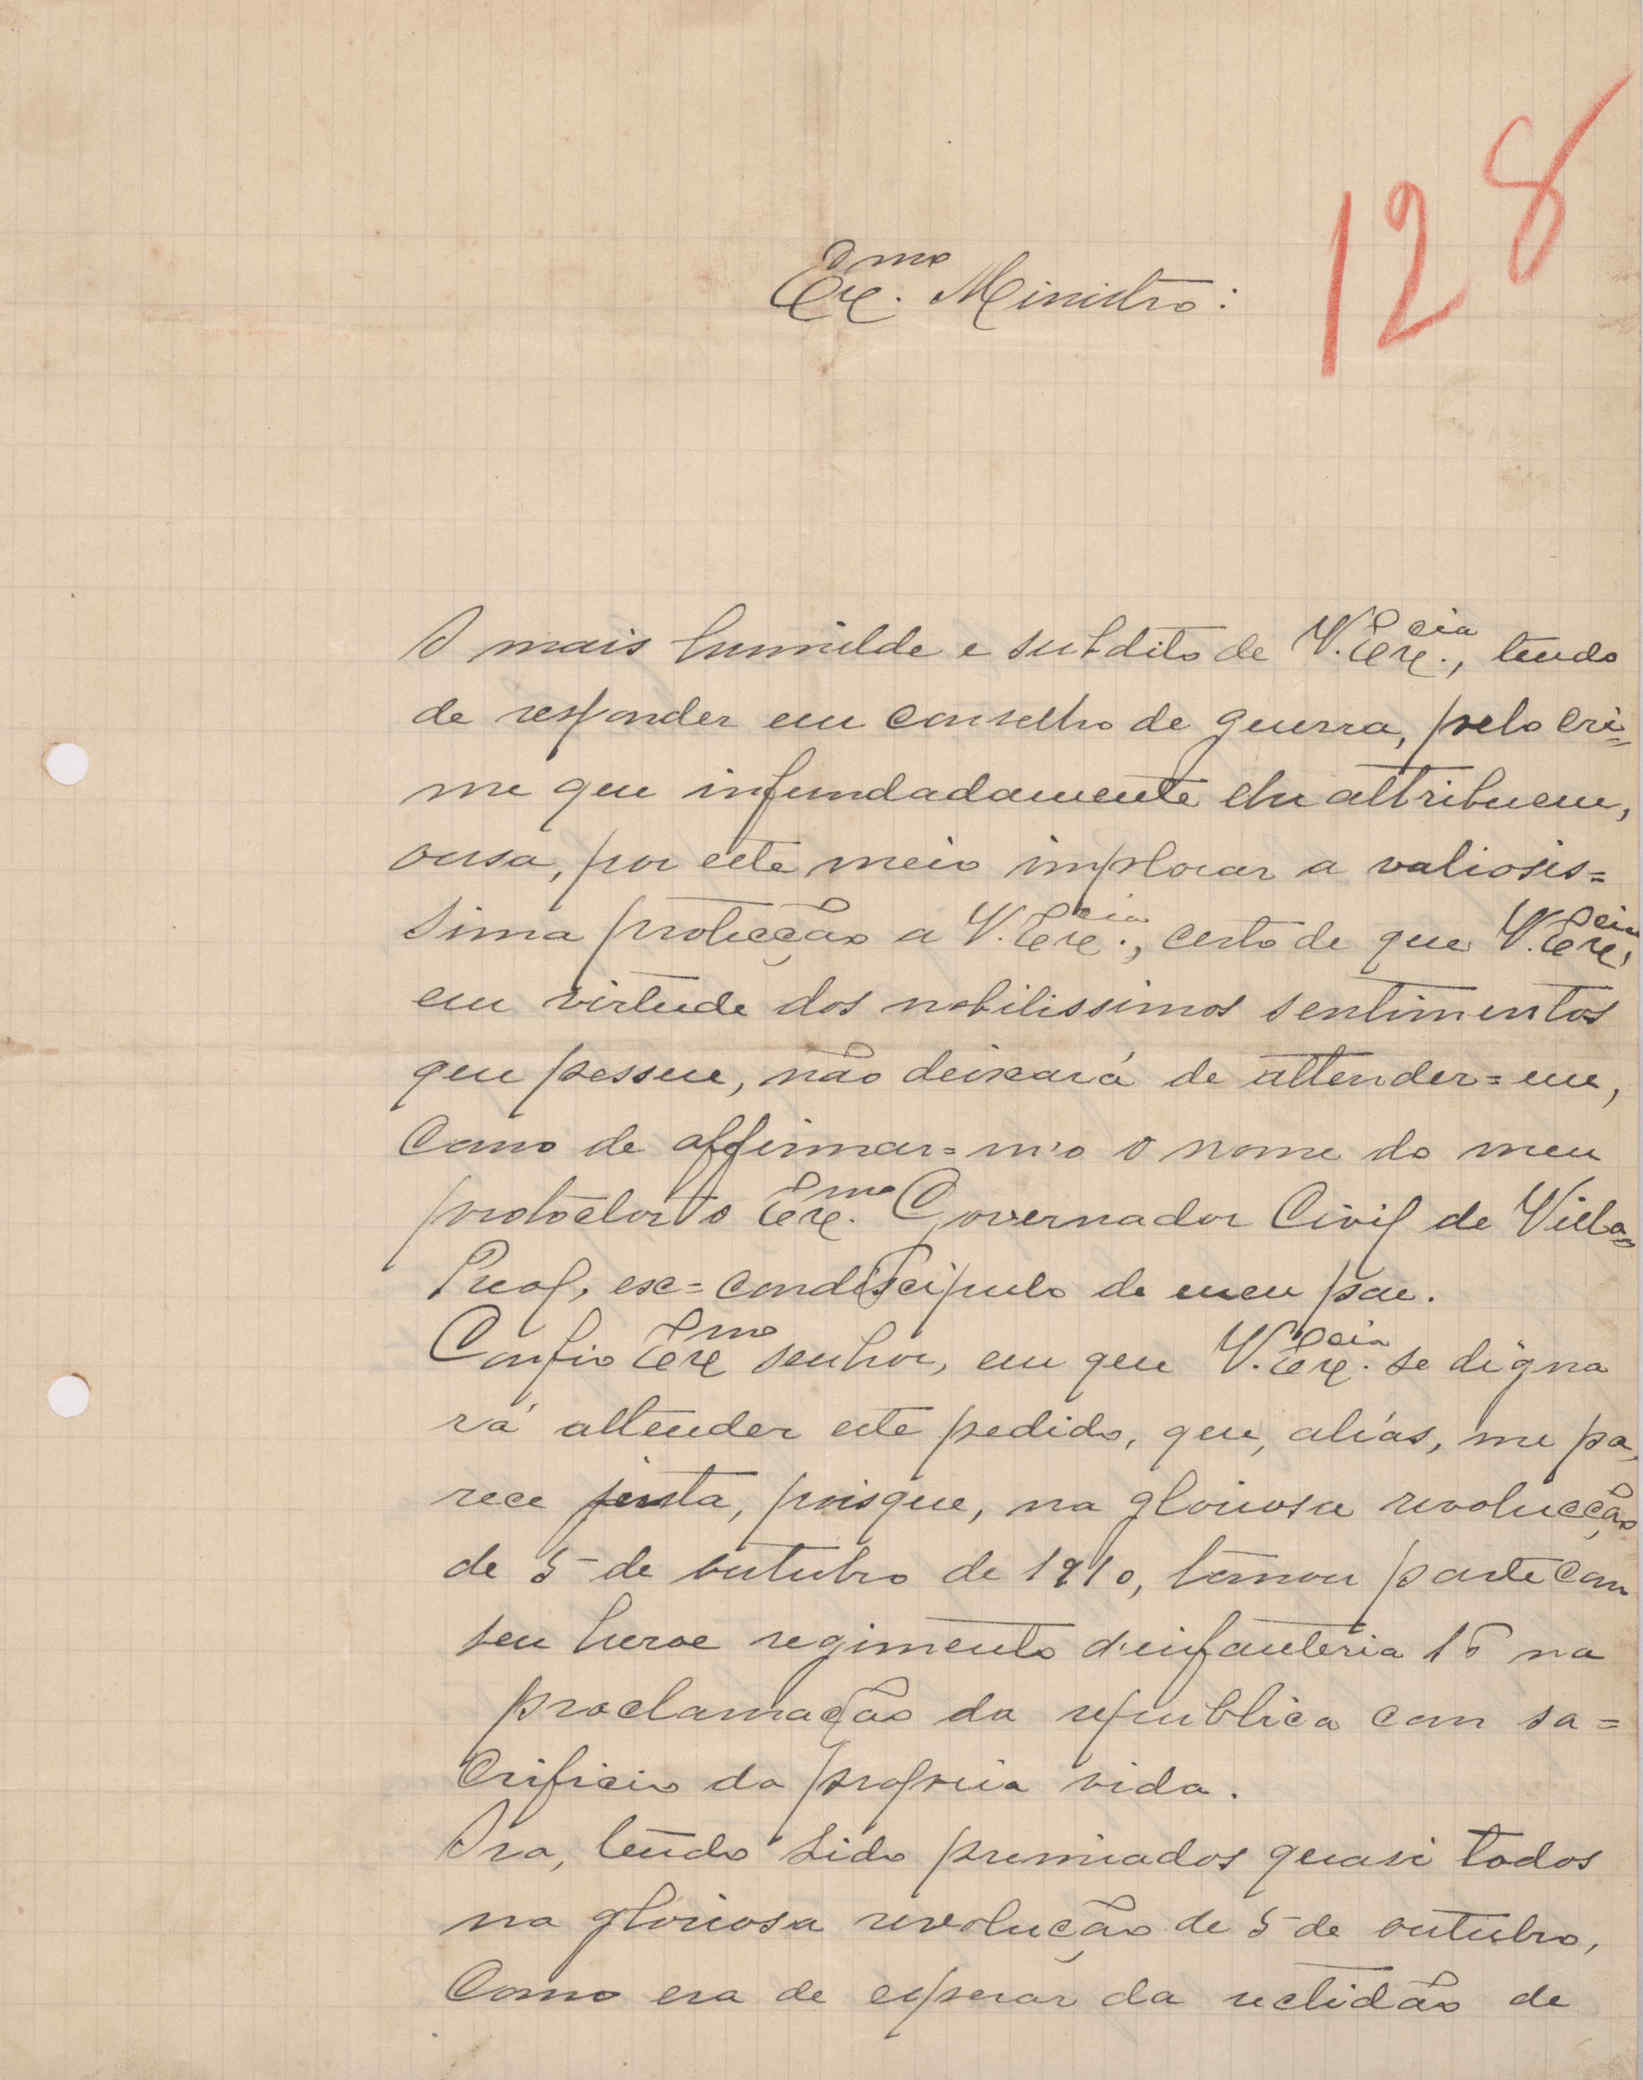 128
Exmo. Ministro:
O mais humilde e subdito de V. Excia., tendo
de responder em conselho de guerra, pelo cri=
me que infundadamente lhe attribuem,
ousa, por este meio implorar a valiosis=
sima protecção a V. Excia., certo de que V. Excia,
em virtude dos nobilissimos sentimentos
que possue, não deixará de attender=me,
como de affirmar=m'o o nome do meu
protector o Exmo. Governador Civil de Villa=
Real, ex=condiscipulo de meu pae.
Confio Exmo senhor, em que V. Excia. se digna
rá attender este pedido, que, aliás, me pa
rece justa, poisque, na gloriosa revolucção
de 5 de outubro de 1910, tomou parte com
seu heroe regimento d'infanteria 16 na
proclamação da republica com sa=
crificio da propria vida.
Ora, tendo sido premiados quasi todos
na gloriosa revolução de 5 de outubro,
como era de esperar da rectidão de